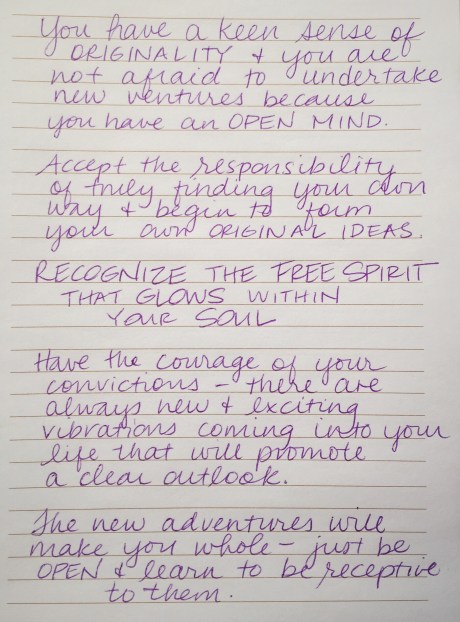 You have a keen sense of
ORIGINALITY & you are
not afraid to undertake
new ventures because
you have an OPEN MIND.
Accept the responsibility
of truly finding your own
way & begin to form
your own ORIGINAL IDEAS.
RECOGNIZE THE FREE SPIRIT
THAT GLOWS WITHIN
YOUR SOUL
Have the courage of your
convictions – there are
always new & exciting
vibrations coming into your
life that will promote
a clear outlook.
The new adventures will
make you whole – just be
OPEN & learn to be receptive
to them.